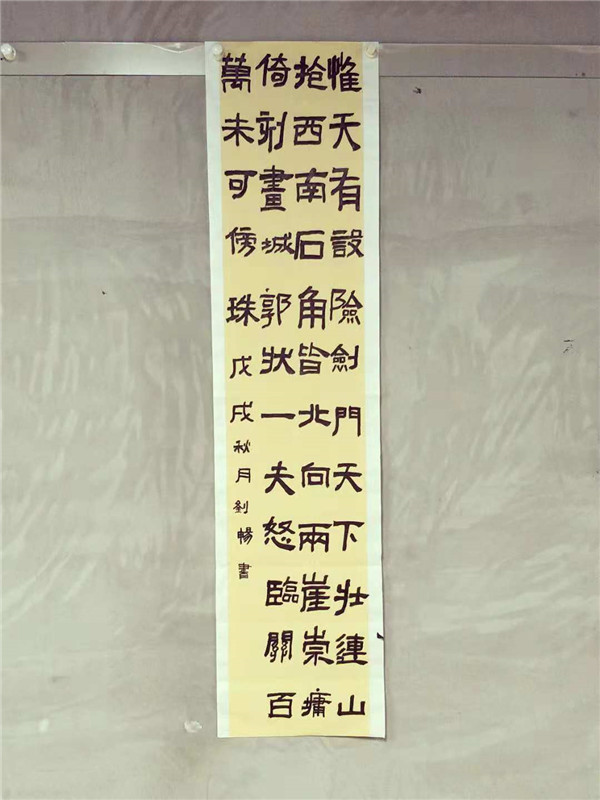 惟天有設險劍門天下壯連山
抢西南石角皆北向兩崖崇墉
倚刻畫城郭狀一夫怒臨關百
萬未可傍珠戊戌秋月劉暢書